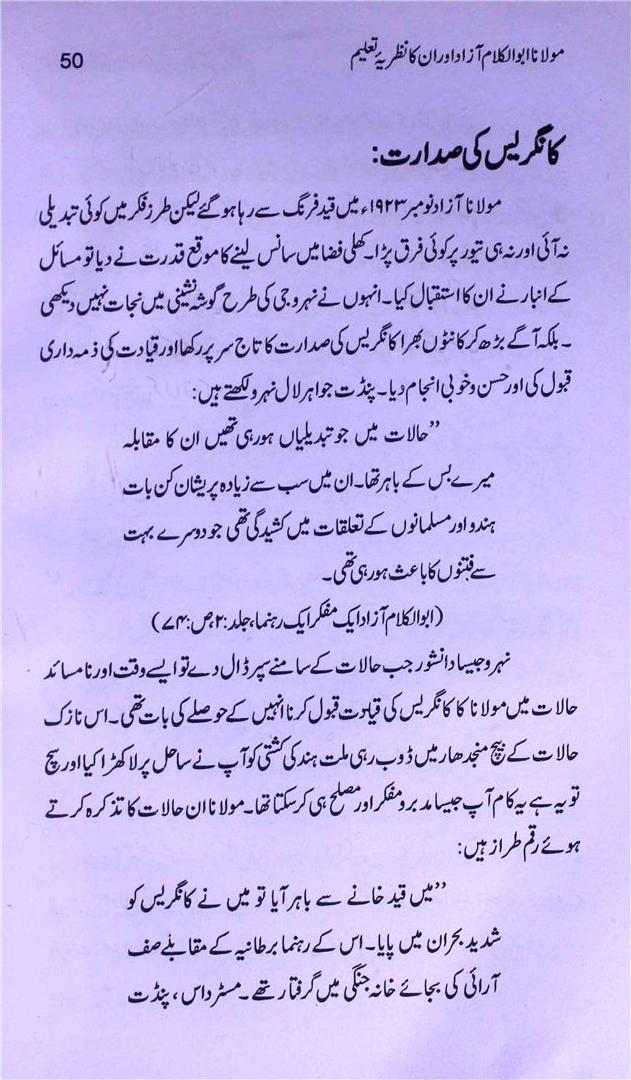 مولانا ابوالکلام آزاد اور ان کا نظریۂ تعلیم 50
کانگریس کی صدارت:
مولانا آزاد نومبر ۱۹۲۳ء میں قید فرنگ سے رہا ہو گئے لیکن طرز فکر میں کوئی تبدیلی
نہ آئی اور نہ ہی تیور پر کوئی فرق پڑا۔ کھلی فضا میں سانس لینے کا موقع قدرت نے دیا تو مسائل
کے انبار نے ان کا استقبال کیا۔ انہوں نے نہرو جی کی طرح گوشہ نشینی میں نجات نہیں دیکھی
۔ بلکہ آگے بڑھ کر کانٹوں بھرا کانگریس کی صدارت کا تاج سر پر رکھا اور قیادت کی ذمہ داری
قبول کی اور حسن و خوبی انجام دیا۔ پنڈت جواہر لال نہرو لکھتے ہیں:
”حالات میں جو تبدیلیاں ہو رہی تھیں ان کا مقابلہ
میرے بس کے باہر تھا۔ ان میں سب سے زیادہ پریشان کن بات
ہندو اور مسلمانوں کے تعلقات میں کشیدگی تھی جو دوسرے بہت
سے فتنوں کا باعث ہو رہی تھی۔
(ابوالکلام آزاد ایک مفکر ایک رہنما، جلد:۲ ص:۷۴)
نہرو جیسا دانشور جب حالات کے سامنے سپر ڈال دے تو ایسے وقت اور نامسائد
حالات میں مولانا کا کانگریس کی قیادت قبول کرنا انہیں کے حوصلے کی بات تھی۔ اس نازک
حالات کے بیچ منجدھار میں ڈوب رہی ملت ہند کی کشتی کو آپ نے ساحل پر لا کھڑا کیا اور سچ
تو یہ ہے یہ کام آپ جیسا مدبر و مفکر اور مصلح ہی کر سکتا تھا۔ مولانا ان حالات کا تذکرہ کرتے
ہوئے رقم طراز ہیں:
”میں قید خانے سے باہر آیا تو میں نے کانگریس کو
شدید بحران میں پایا۔ اس کے رہنما برطانیہ کے مقابلے صف
آرائی کی بجائے خانہ جنگی میں گرفتار تھے۔ مسٹر داس، پنڈت